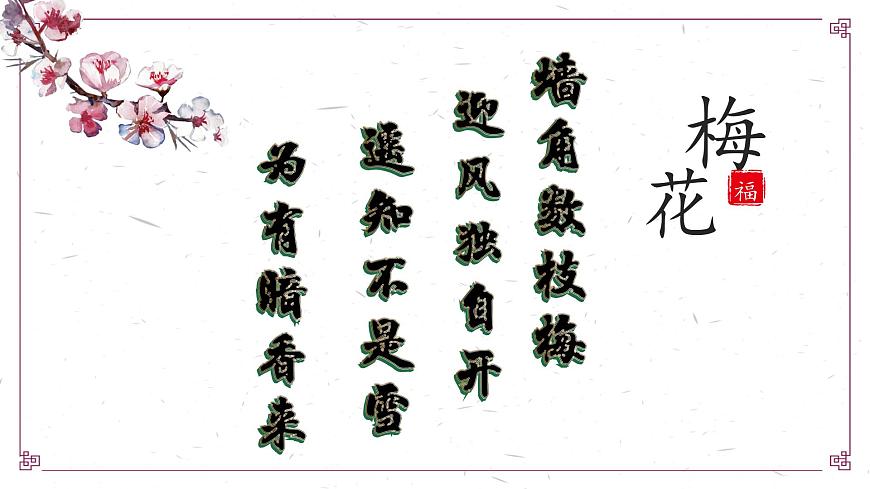 梅花
福
墙角数枝梅
迎风独自开
遥知不是雪
为有暗香来